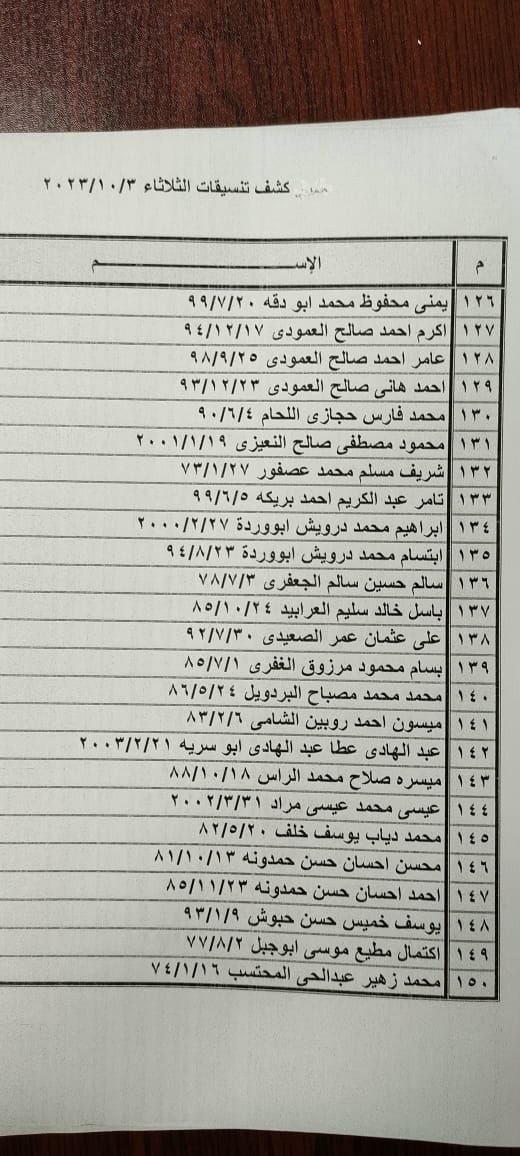 كشف تنسيقات الثلاثاء ٢٠٢٣/١٠/٣
م الإســـــــــــــــــــــــم
١٢٦ يمنى محفوظ محمد ابو دقه ٩٩/٧/٢٠
١٢٧ اكرم احمد صالح العمودى ٩٤/١٢/١٧
١٢٨ عامر احمد صالح العمودى ٩٨/٩/٢٥
١٢٩ احمد هانى صالح العمودى ٩٣/١٢/٢٣
١٣٠ محمد فارس حجازى اللحام ٩٠/٦/٤
١٣١ محمود مصطفى صالح النعيزى ٢٠٠١/١/١٩
١٣٢ شريف مسلم محمد عصفور ٧٣/١/٢٧
١٣٣ تامر عبد الكريم احمد بريكه ٩٩/٦/٥
١٣٤ ابراهيم محمد درويش ابووردة ٢٠٠٠/٢/٢٧
١٣٥ ابتسام محمد درويش ابووردة ٩٤/٨/٢٣
١٣٦ سالم حسين سالم الجعفرى ٧٨/٧/٣
١٣٧ باسل خالد سليم العرابيد ٨٥/١٠/٢٤
١٣٨ على عثمان عمر الصعيدى ٩٢/٧/٣٠
١٣٩ بسام محمود مرزوق الغفرى ٨٥/٧/١
١٤٠ محمد محمد مصباح البردويل ٨٦/٥/٢٤
١٤١ ميسون احمد روبين الشامى ٨٣/٢/٦
١٤٢ عبد الهادى عطا عبد الهادى ابو سريه ٢٠٠٣/٢/٢١
١٤٣ ميسره صلاح محمد الراس ٨٨/١٠/١٨
١٤٤ عيسى محمد عيسى مراد ٢٠٠٢/٣/٣١
١٤٥ محمد دياب يوسف خلف ٨٢/٥/٢٠
١٤٦ محسن احسان حسن حمدونه ٨١/١٠/١٣
١٤٧ احمد احسان حسن حمدونه ٨٥/١١/٢٣
١٤٨ يوسف خميس حسن حبوش ٩٣/١/٩
١٤٩ اكتمال مطيع موسى ابوجبل ٧٧/٨/٢
١٥٠ محمد زهير عبدالحى المحتسب ٧٤/١/١٦